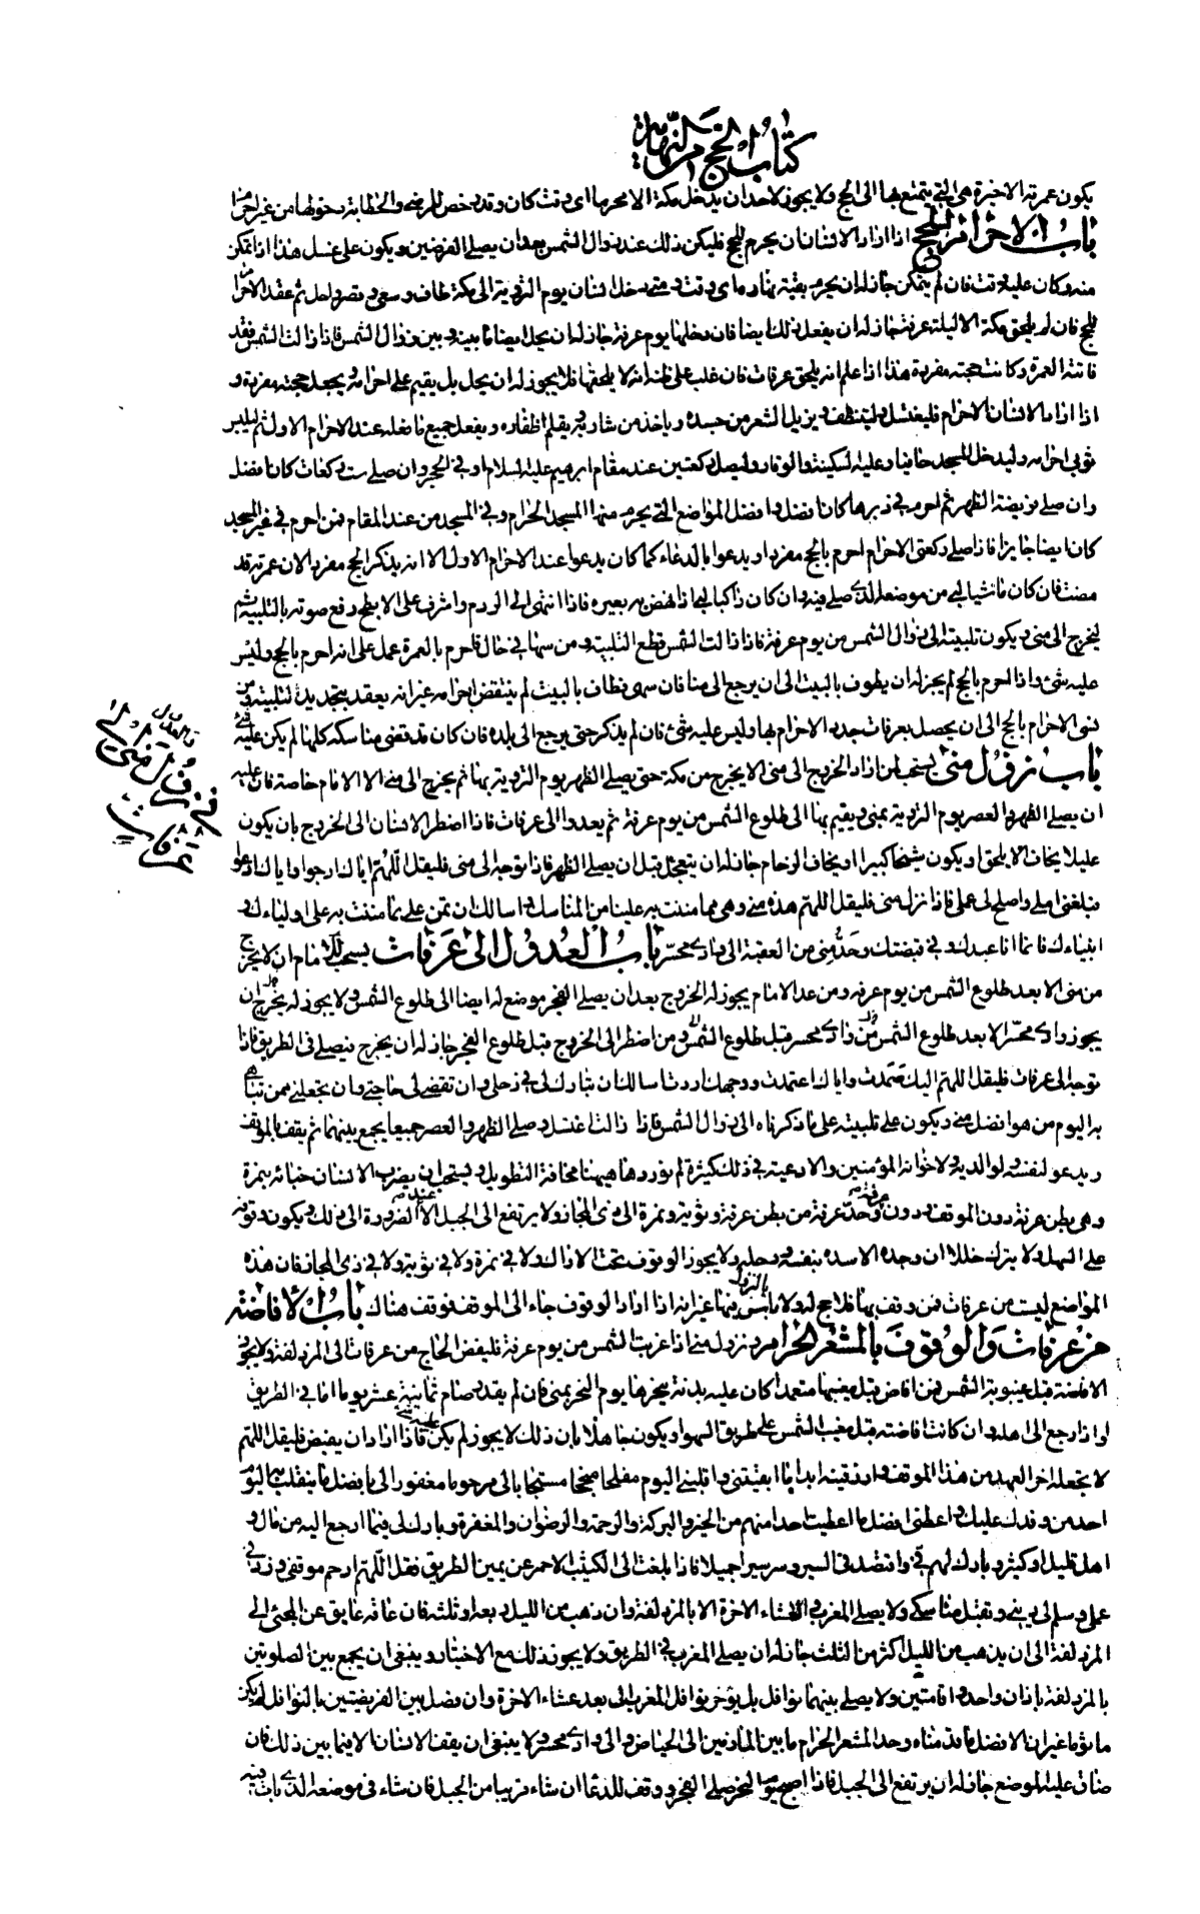 كتاب الحج من النهاية
يكون عمرته الاخيرة هي التي يتمتع بها الى الحج ولا يجوز لاحد ان يدخل مكة الا محرما اي وقت كان وقد رخص للمرضى والحطابة دخولها من غير احرام
باب الاحرام للحج اذا اراد الانسان ان يحرم للحج فليكن ذلك عند زوال الشمس بعد ان يصلي الفرضين ويكون على غسل هذا اذا تمكن
منه وكان عليه وقت فان لم يتمكن جاز له ان يحرم بقية نهاره اي وقت ومتى دخل انسان يوم التروية الى مكة طاف وسعى وقصر واحل ثم عقد الاحرام
للحج فان لم يلحق مكة الا ليلة عرفة جاز له ان يفعل ذلك ايضا فان دخلها يوم عرفة جاز له ان يحل ايضا ما بينه وبين زوال الشمس فاذا زالت الشمس فقد
فاتته العمرة وكانت حجته مفردة هذا اذا علم انه يلحق عرفات فان غلب على ظنه انه لا يلحقها فلا يجوز له ان يحل بل يقيم على احرامه ويجعل حجته مفردة و
اذا اراد الانسان الاحرام فليغتسل وليتنظف ويزيل الشعر من جسده وياخذ من شاربه ويقلم اظفاره ويفعل جميع ما فعله عند الاحرام الاول ثم ليلبس
ثوبي احرامه وليدخل المسجد حافيا وعليه السكينة والوقار وليصل ركعتين عند مقام ابرهيم عليه السلام او في الحجر وان صلى ست ركعات كان افضل
وان صلى فريضة الظهر ثم احرم في دبرها كان افضل وافضل المواضع التي يحرم منها المسجد الحرام وفي المسجد من عند المقام فمن احرم في غير المسجد
كان ايضا جايزا فاذا صلى ركعتي الاحرام احرم بالحج مفردا ويدعوا بالدعاء كما كان يدعوا عند الاحرام الاول الا انه يذكر الحج مفردا لان عمرته قد
مضت فان كان ماشيا لبى من موضعه الذي صلى فيه وان كان راكبا لبى اذا نهض به بعيره فاذا انتهى الى الردم واشرف على الابطح رفع صوته بالتلبية ثم
ليخرج الى منى ويكون تلبيته الى زوال الشمس من يوم عرفة فاذا زالت الشمس قطع التلبية ومن سها في حال فاحرم بالعمرة عمل على انه احرم بالحج وليس
عليه شئ واذا احرم بالحج لم يجز له ان يطوف بالبيت الى ان يرجع الى منا فان سهى وطاف بالبيت لم ينتقض احرامه غير انه يعقده بتجديد التلبية ومن
نسى الاحرام بالحج الى ان يحصل بعرفات جدد الاحرام بها وليس عليه شئ فان لم يذكر حتى يرجع الى بلده فان كان قد قضى مناسكه كلها لم يكن عليه شئ
باب نزول منى يستحب لمن اراد الخروج الى منى الا يخرج من مكة حتى يصلي الظهر يوم التروية بها ثم يخرج الى منى الا الامام خاصة فان عليه
ان يصلي الظهر والعصر يوم التروية بمنى ويقيم بها الى طلوع الشمس من يوم عرفة ثم يغدوا الى عرفات فاذا اضطر الانسان الى الخروج بان يكون
عليلا يخاف الا يلحق او يكون شيخا كبيرا او يخاف الزحام جاز له ان يتعجل قبل ان يصلي الظهر فاذا توجه الى منى فليقل اللهم اياك ارجوا واياك ادعوا
فبلغني املي واصلح لي عملي فاذا نزل منى فليقل اللهم هذه منى وهي مما مننت به علينا من المناسك واسالك ان تمن علي بما مننت به على اولياءك و
انبياءك فانما انا عبدك وفي قبضتك وحد منى من العقبة الى وادي محسر باب الغدو الى عرفات يستحب للامام ان لا يخرج
من منى الا بعد طلوع الشمس من يوم عرفه ومن عدا الامام يجوز له الخروج بعد ان يصلي الفجر بموضعه ايضا الى طلوع الشمس ولا يجوز له ان
يجوز وادي محسر الا بعد طلوع الشمس قبل طلوع الشمس ومن اضطر الى الخروج قبل طلوع الفجر جاز له ان يخرج فيصلي في الطريق فاذا
توجه الى عرفات فليقل اللهم اليك صمدت واياك اعتمدت ووجهك اردت اسالك ان تبارك لي في رحلي وان تقضي لي حاجتي وان تجعلني ممن تباهي
به اليوم من هو افضل مني ويكون على تلبيته على ما ذكرناه الى زوال الشمس فاذا زالت اغتسل وصلى الظهر والعصر جميعا يجمع بينهما ثم يقف بالموقف
ويدعو لنفسه ولوالديه ولاخوانه المؤمنين والادعية في ذلك كثيرة لم نوردها هيهنا مخافة التطويل ويستحب ان يضرب الانسان خباءه بنمرة
وهي بطن عرنة دون الموقف ودون عرفة وحد عرفة من بطن عرنة وثوية ونمرة الى ذي المجاز ولا يرتفع الى الجبل الا عند الضرورة الى ذلك ويكون وقوفه
على السهل ولا يترك خللا ان وجده الا سده بنفسه ورحله ولا يجوز الوقوف تحت الاراك ولا في نمرة ولا في ثوية ولا في ذي المجاز فان هذه
المواضع ليست من عرفات فمن وقف بها فلا حج له ولا باس بالنزول بها غير انه اذا اراد الوقوف جاء الى الموقف فوقف هناك باب الافاضة
من عرفات والوقوف بالمشعر الحرام ونزول منى اذا غربت الشمس من يوم عرفة فليفض الحاج من عرفات الى المزدلفة ولا يجوز
الافاضة قبل غيبوبة الشمس فمن افاض قبل مغيبها متعمدا كان عليه بدنة ينحرها يوم النحر بمنى فان لم يقدر صام ثمانية عشر يوما اما في الطريق
او اذا رجع الى اهله وان كانت افاضته قبل مغيب الشمس على طريق السهو او يكون جاهلا بان ذلك لا يجوز لم يكن عليه شئ فاذا اراد ان يفيض فليقل اللهم
لا تجعله اخر العهد من هذا الموقف وارزقنيه ابدا ما ابقيتني واقلبني اليوم مفلحا منجحا مستجابا لي مرحوما مغفورا لي بافضل ما ينقلب به اليوم
احد من وفدك عليك واعطني افضل ما اعطيت احدا منهم من الخير والبركة والرحمة والرضوان والمغفرة وبارك لي فيما ارجع اليه من مال و
اهل قليل او كثير وبارك لهم في واقتصد في السير وسر سيرا جميلا فاذا بلغت الى الكثيب الاحمر عن يمين الطريق فقل اللهم ارحم موقفي وزد في
عملي وسلم لي ديني وتقبل مناسكي ولا يصلي المغرب والعشاء الاخرة الا بالمزدلفة وان ذهب من الليل ربعه او ثلثه فان عاقه عايق عن المجئ الى
المزدلفة الى ان يذهب من الليل اكثر من الثلث جاز له ان يصلي المغرب في الطريق ولا يجوز ذلك مع الاختيار وينبغي ان يجمع بين الصلوتين
بالمزدلفة باذان واحد واقامتين ولا يصلي بينهما نوافل بل يؤخر نوافل المغرب الى بعد عشاء الاخرة وان فصل بين الفريضتين بالنوافل لم يكن
ماثوما غير ان الافضل ما قدمناه وحد المشعر الحرام ما بين المازمين الى الحياض والى وادي محسر ولا ينبغي ان يقف الانسان الا فيما بين ذلك فان
ضاق عليه الموضع جاز له ان يرتفع الى الجبل فاذا اصبح يوم النحر صلى الفجر ووقف للدعا ان شاء قريبا من الجبل فان شاء في موضعه الذي بات فيه
في نزول منى
عرفات